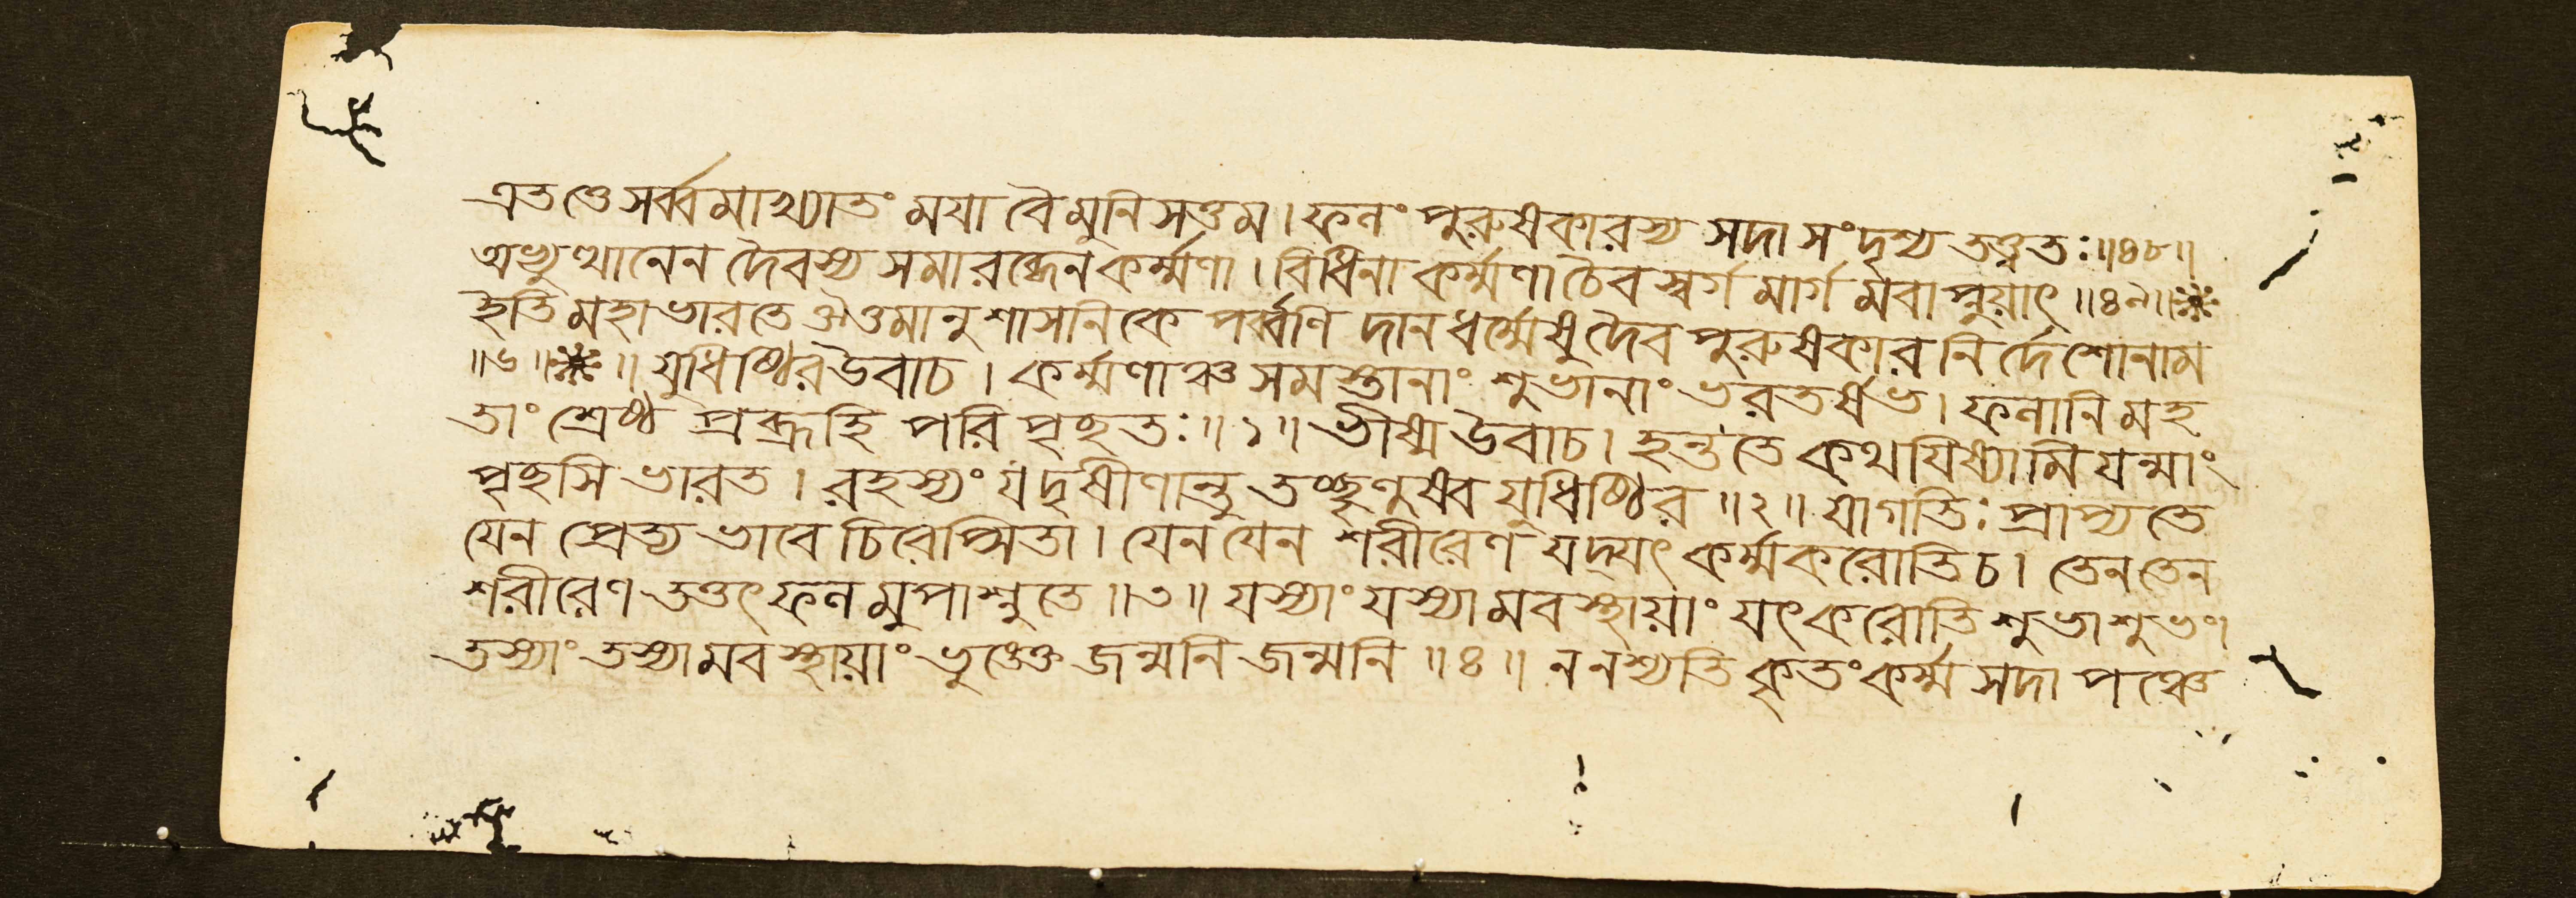 এতত্তে সর্ব্বমাখ্যাতং ময়া বৈ মুনিসত্তম। ফলং পুরুষকারস্য সদা সংদৃশ্য তত্ত্বতঃ॥৪৮॥
অভ্যুত্থানেন দৈবস্য সমারব্ধেন কর্ম্মণা। বিধিনা কর্ম্মণা চৈব স্বর্গমার্গমবাপ্নুয়াৎ॥৪৯॥
ইতি মহাভারতে ঔত্তমানুশাসনিকে পর্ব্বণি দানধর্ম্মেষু দৈবপুরুষকারনির্দেশোনাম
॥৬॥ ॥ যুধিষ্ঠির উবাচ। কর্ম্মণাঞ্চ সমস্তানাং শুভানাং ভরতর্ষভ। ফলানি মহ
তাং শ্রেষ্ঠ প্রব্রূহি পরিপৃছতঃ॥১॥ ভীষ্ম উবাচ। হন্ত তে কথয়িষ্যামি যন্মাং
পৃছসি ভারত। রহস্যং যদৃষীণান্তু তচ্ছৃণুষ্ব যুধিষ্ঠির॥২॥ যা গতিঃ প্রাপ্যতে
যেন প্রেত্যভাবে চিরেপ্সিতা। যেন যেন শরীরেণ যদ্যৎ কর্ম্ম করোতি চ। তেন তেন
শরীরেণ তত্তৎ ফলমুপাশ্নুতে॥৩॥ যস্যাং যস্যামবস্থায়াং যৎ করোতি শুভাশুভং।
তস্যাং তস্যামবস্থায়াং ভুঙ্ক্তে জন্মনি জন্মনি॥৪॥ ন নশ্যতি কৃতং কর্ম্ম সদা পঞ্চে